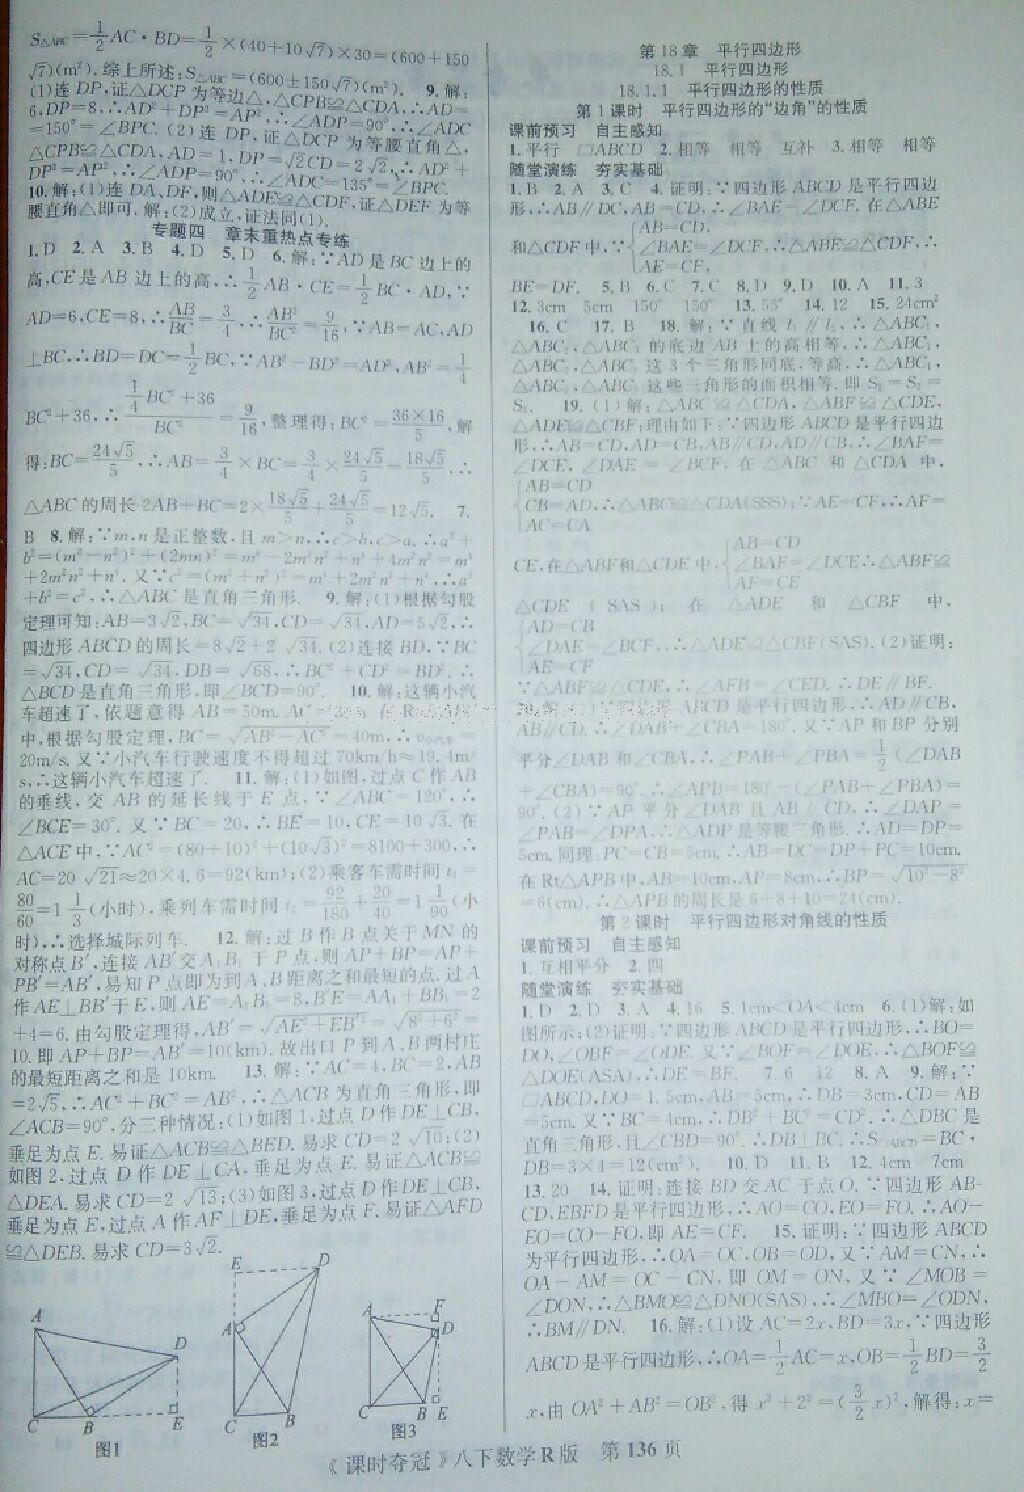 S△ABC=1/2AC·BD=1/2×(40+10√7)×30=(600+150
√7)(m²). 综上所述:S△ABC=(600±150√7)(m²). 9.解:
(1)连 DP,证△DCP 为等边△,△CPB≌△CDA,∴AD=
6,DP=8,∴AD²+DP²=AP²,∴∠ADP=90°,∴∠ADC
=150°=∠BPC. (2)连 DP,证△DCP 为等腰直角△,
△CPB≌△CDA,AD=1,DP=√2CD=2√2,∴AD²+
DP²=AP²,∴∠ADP=90°,∴∠ADC=135°=∠BPC.
10.解:(1)连 DA、DF,则△ADE≌△CDF,证△DEF 为等
腰直角△即可. 解:(2)成立,证法同(1).
专题四 章末重热点专练
1.D 2.A 3.B 4.D 5.D 6.解:∵AD 是 BC 边上的
高,CE 是 AB 边上的高,∴1/2AB·CE=1/2BC·AD,∵
AD=6,CE=8,∴AB/BC=3/4,∴AB²/BC²=9/16,∵AB=AC,AD
⊥BC,∴BD=DC=1/2BC,∵AB²-BD²=AD²,AB²=1/4
BC²+36,∴(1/4BC²+36)/BC²=9/16,整理得:BC²=(36×16)/5,解
得:BC=24√5/5,∴AB=3/4×BC=3/4×24√5/5=18√5/5,∴
△ABC 的周长 2AB+BC=2×18√5/5+24√5/5=12√5. 7.
B 8.解:∵m,n 是正整数,且 m>n,∴c>b,c>a,∴a²+
b²=(m²-n²)²+(2mn)²=m⁴-2m²n²+n⁴+4m²n²=m⁴
+2m²n²+n⁴. 又∵c²=(m²+n²)²=m⁴+2m²n²+n⁴,∴a²
+b²=c²,∴△ABC 是直角三角形. 9.解:(1)根据勾股
定理可知:AB=3√2,BC=√34,CD=√34,AD=5√2,∴
四边形 ABCD 的周长=8√2+2√34. (2)连接 BD,∵BC
=√34,CD=√34,DB=√68,∴BC²+CD²=BD²,∴
△BCD 是直角三角形,即∠BCD=90°. 10.解:这辆小汽
车超速了,依题意得 AB=50m,AC=30m,在 Rt△ABC
中,根据勾股定理,BC=√(AB²-AC²)=40m,∴v小汽车=
20m/s. 又∵小汽车行驶速度不得超过 70km/h≈19.4m/
s,∴这辆小汽车超速了. 11.解:(1)如图,过点 C 作 AB
的垂线,交 AB 的延长线于 E 点,∵∠ABC=120°,∴
∠BCE=30°. 又∵BC=20,∴BE=10,CE=10√3. 在
△ACE 中,∵AC²=(80+10)²+(10√3)²=8100+300,∴
AC=20√21≈20×4.6=92(km);(2)乘客车需时间 t₁=
80/60=1 1/3(小时),乘列车需时间 t₂=92/180+20/40=1 1/90(小
时),∴选择城际列车. 12.解:过 B 作 B 点关于 MN 的
对称点 B′,连接 AB′交 A₁B₁ 于 P 点,则 AP+BP=AP+
PB′=AB′,易知 P 点即为到 A、B 距离之和最短的点. 过 A
作 AE⊥BB′于 E,则 AE=A₁B₁=8,B′E=AA₁+BB₁=2
+4=6. 由勾股定理得,AB′=√(AE²+EB′²)=√(8²+6²)=
10. 即 AP+BP=AB′=10(km). 故出口 P 到 A、B 两村庄
的最短距离之和是 10km. 13.解:∵AC=4,BC=2,AB
=2√5,∴AC²+BC²=AB²,∴△ACB 为直角三角形,即
∠ACB=90°,分三种情况:(1)如图 1,过点 D 作 DE⊥CB,
垂足为点 E. 易证△ACB≌△BED. 易求 CD=2√10;(2)
如图 2,过点 D 作 DE⊥CA,垂足为点 E. 易证△ACB≌
△DEA. 易求 CD=2√13;(3)如图 3,过点 D 作 DE⊥CB,
垂足为点 E,过点 A 作 AF⊥DE,垂足为点 F. 易证△AFD
≌△DEB. 易求 CD=3√2.
A D C B E
图1
E D A C B
图2
A F D C B E
图3
第18章 平行四边形
18.1 平行四边形
18.1.1 平行四边形的性质
第1课时 平行四边形的“边角”的性质
课前预习 自主感知
1.平行 □ABCD 2.相等 相等 互补 3.相等 相等
随堂演练 夯实基础
1.B 2.A 3.C 4.证明:∵四边形 ABCD 是平行四边
形,∴AB∥DC,AB=CD,∴∠BAE=∠DCF. 在△ABE
和△CDF 中,∵{AB=CD, ∠BAE=∠DCF, AE=CF, ∴△ABE≌△CDF,∴
BE=DF. 5.B 6.C 7.C 8.D 9.D 10.A 11.3
12.3cm 5cm 150° 150° 13.55° 14.12 15.24cm²
16.C 17.B 18.解:∵直线 l₁∥l₂,∴△ABC₁,
△ABC₂,△ABC₃ 的底边 AB 上的高相等,∴△ABC₁,
△ABC₂,△ABC₃ 这 3 个三角形同底,等高,∴△ABC₁,
△ABC₂,△ABC₃ 这些三角形的面积相等. 即 S₁=S₂=
S₃. 19.(1)解:△ABC≌△CDA,△ABF≌△CDE,
△ADE≌△CBF;理由如下:∵四边形 ABCD 是平行四边
形,∴AB=CD,AD=CB,AB∥CD,AD∥CB,∴∠BAF=
∠DCE,∠DAE=∠BCF,在△ABC 和△CDA 中,
{AB=CD CB=AD, AC=CA ∴△ABC≌△CDA(SSS);∵AE=CF,∴AF=
CE,在△ABF和△CDE 中,{AB=CD ∠BAF=∠DCE AF=CE ∴△ABF≌
△CDE(SAS);在△ADE 和△CBF 中,
{AD=CB ∠DAE=∠BCF, AE=CF ∴△ADE≌△CBF(SAS). (2)证明:
∵△ABF≌△CDE,∴∠AFB=∠CED. ∴DE∥BF.
20.解:(1)∵四边形 ABCD 是平行四边形,∴AD∥CB,
AB∥CD,∴∠DAB+∠CBA=180°. 又∵AP 和 BP 分别
平分∠DAB 和∠CBA,∴∠PAB+∠PBA=1/2(∠DAB
+∠CBA)=90°,∴∠APB=180°-(∠PAB+∠PBA)=
90°. (2)∵AP 平分∠DAB 且 AB∥CD,∴∠DAP=
∠PAB=∠DPA,∴△ADP 是等腰三角形,∴AD=DP=
5cm. 同理:PC=CB=5cm. ∴AB=DC=DP+PC=10cm.
在 Rt△APB 中,AB=10cm,AP=8cm,∴BP=√(10²-8²)
=6(cm). ∴△APB 的周长是 6+8+10=24(cm).
第2课时 平行四边形对角线的性质
课前预习 自主感知
1.互相平分 2.四
随堂演练 夯实基础
1.D 2.D 3.A 4.16 5.1cm<OA<4cm 6.(1)解:如
图所示;(2)证明:∵四边形 ABCD 是平行四边形,∴BO=
DO,∠OBF=∠ODE. 又∵∠BOF=∠DOE,∴△BOF≌
△DOE(ASA),∴DE=BF. 7.6 12 8.A 9.解:∵
□ABCD,DO=1.5cm,AB=5cm,∴DB=3cm,CD=AB
=5cm. 又∵BC=4cm,∴DB²+BC²=CD²,∴△DBC 是
直角三角形,且∠CBD=90°. ∴DB⊥BC. ∴S□ABCD=BC·
DB=3×4=12(cm²). 10.D 11.B 12.4cm 7cm
13.20 14.证明:连接 BD 交 AC 于点 O. ∵四边形 AB-
CD,EBFD 是平行四边形,∴AO=CO,EO=FO. ∴AO-
EO=CO-FO,即 AE=CF. 15.证明:∵四边形 ABCD
为平行四边形,∴OA=OC,OB=OD,又∵AM=CN,∴
OA-AM=OC-CN,即 OM=ON,又∵∠MOB=
∠DON,∴△BMO≌△DNO(SAS),∴∠MBO=∠ODN,
∴BM∥DN. 16.解:(1)设 AC=2x,BD=3x,∵四边形
ABCD 是平行四边形,∴OA=1/2AC=x,OB=1/2BD=3/2
x,由 OA²+AB²=OB²,得 x²+2²=(3/2x)²,解得:x=
《课时夺冠》八下数学R版 第136页